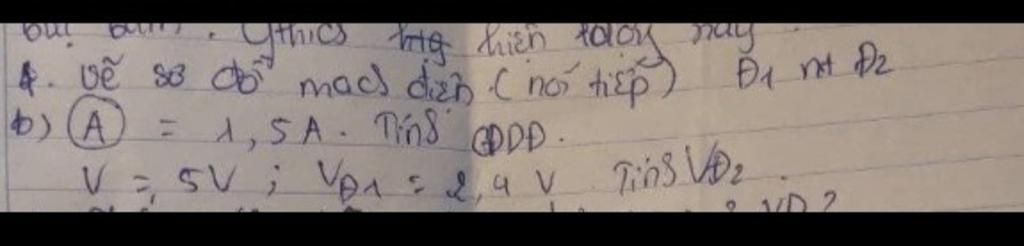 hiện này
4. vẽ sơ đồ mạch điện (nối tiếp) Đ1 nt Đ2
b) A = 1,5A. Tính CĐDĐ.
V = 5V ; VĐ1 = 2,4 V Tính VĐ2.